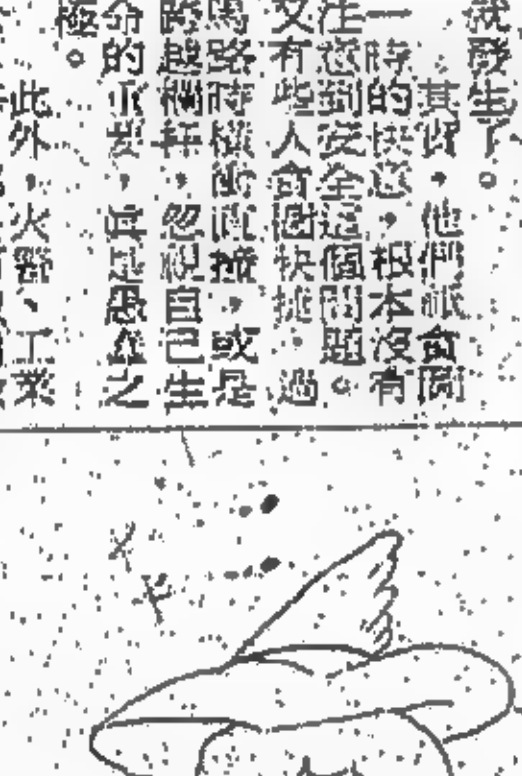 就發生了。
其實，他們祇貪圖
一時的快意，根本沒有
注意到安全這個問題。
又有些人貪圖快捷，過
馬路時橫衝直撞，或是
跨越欄杆，忽視自己生
命的重要，真是愚蠢之
極。
此外，火警、工業